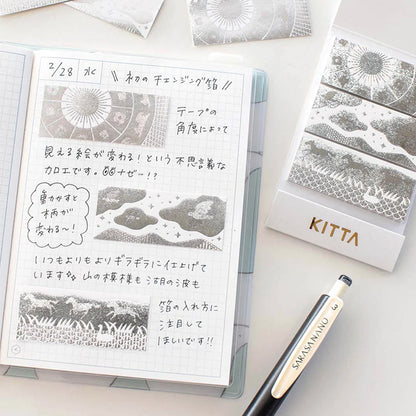 2/28 水 \\ 初のチェンジング箔 //
テープの
角度によって
見える絵が変わる!という不思議な
カロエです。ナゼー!?
動かすと
柄が
変わる〜!
いつもよりもよりギラギラに仕上げて
います 山の模様も 湖の波も
箔の入れ方に
注目して
ほしいです!!
KITTA
SARASA NANO
3